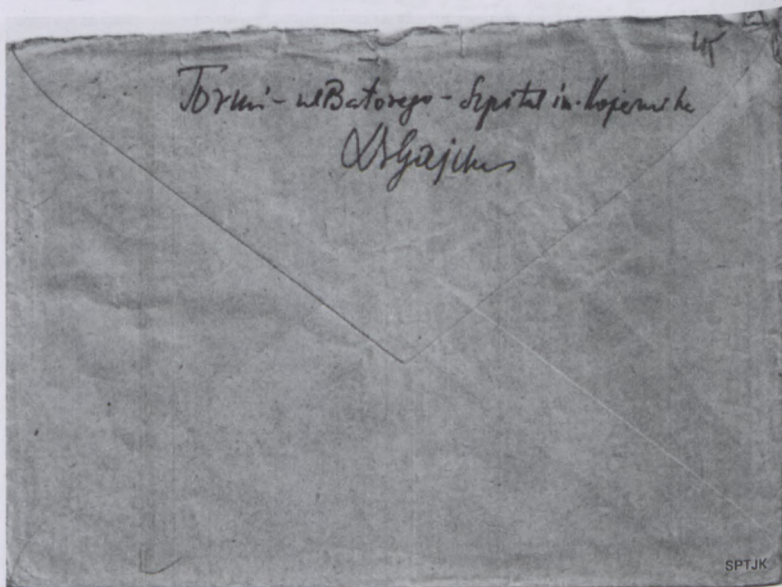 45
Toruń - ul Batorego - Szpital im. Kopernika
SPTJK